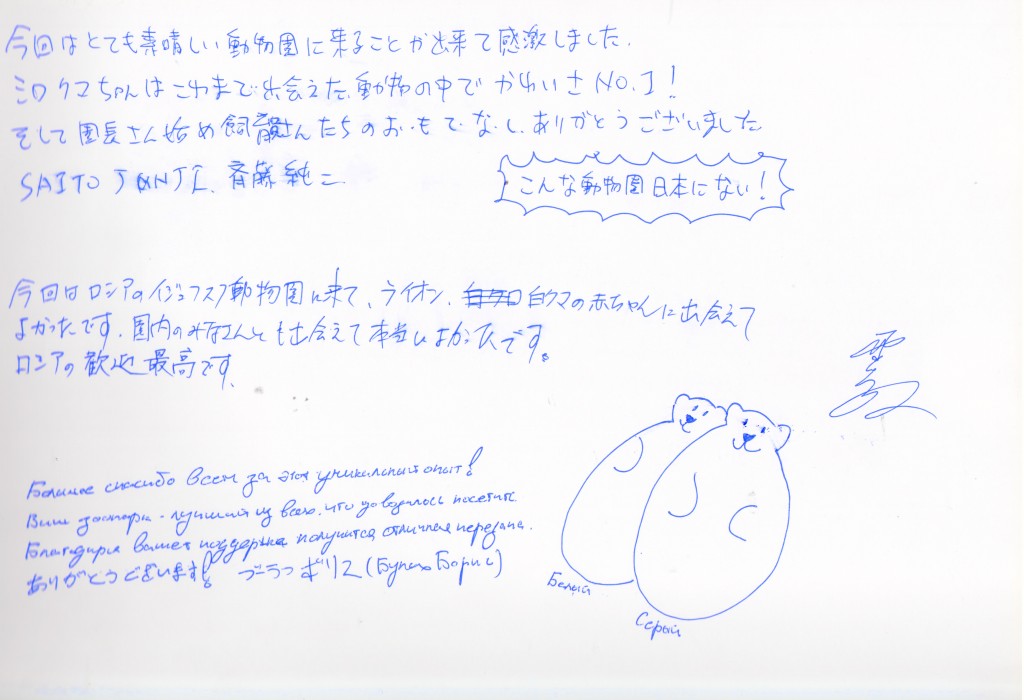 今回はとても素晴しい動物園に来ることが出来て感激しました.
シロクマちゃんはこれまで出会えた動物の中でかわいさNO.1!
そして園長さん始め飼育員さんたちのおもてなし、ありがとうございました
SAITO JUNJI. 斉藤純二
こんな動物園日本にない!
今回はロシアのイジェフスク動物園に来て、ライオン、白クマの赤ちゃんに出会えて
よかったです.園内のみなさんとも出会えて本当によかったです。
ロシアの歓迎最高です.
Большое спасибо всем за этот уникальный опыт!
Ваш зоопарк - лучший из всего, что доводилось посетить.
Благодаря вашей поддержке получится отличная передача.
ありがとうございます! ブーラフ ボリス (Борис)
Белый
Серый